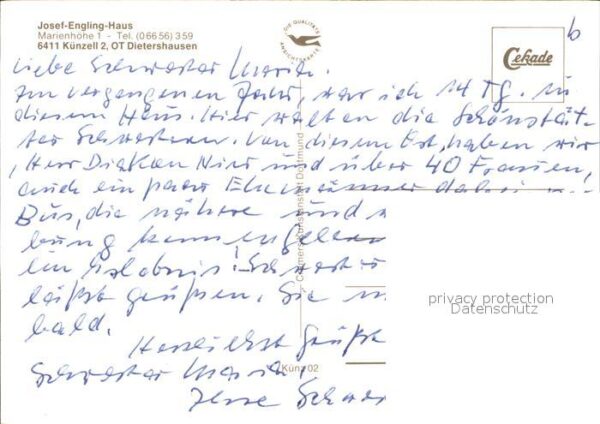 Josef-Engling-Haus
Marienhöhe 1 - Tel. (06656) 359
6411 Künzell 2, OT Dietershausen
DIE QUALITÄTS
ANSICHTSKARTE
b
Cekade
Liebe Schwester Maria.
Im vergangenen Jahr, war ich 14 Tg. in
diesem Haus. Hier walten die Schönstät-
ter Schwestern. Von diesem Ort, haben wir,
Herr Diakon und über 40 Frauen,
auch ein paar Ehemänner dabei
Bus, die nähere und
bung kennengeler
ein Erlebnis! Schwest
läßt grüßen. Sie
bald.
Herzlichst grüßt
Schwester Maria,
Ihre Schw
Cramers Kunstanstalt Dortmund
Künz 02
privacy protection
Datenschutz